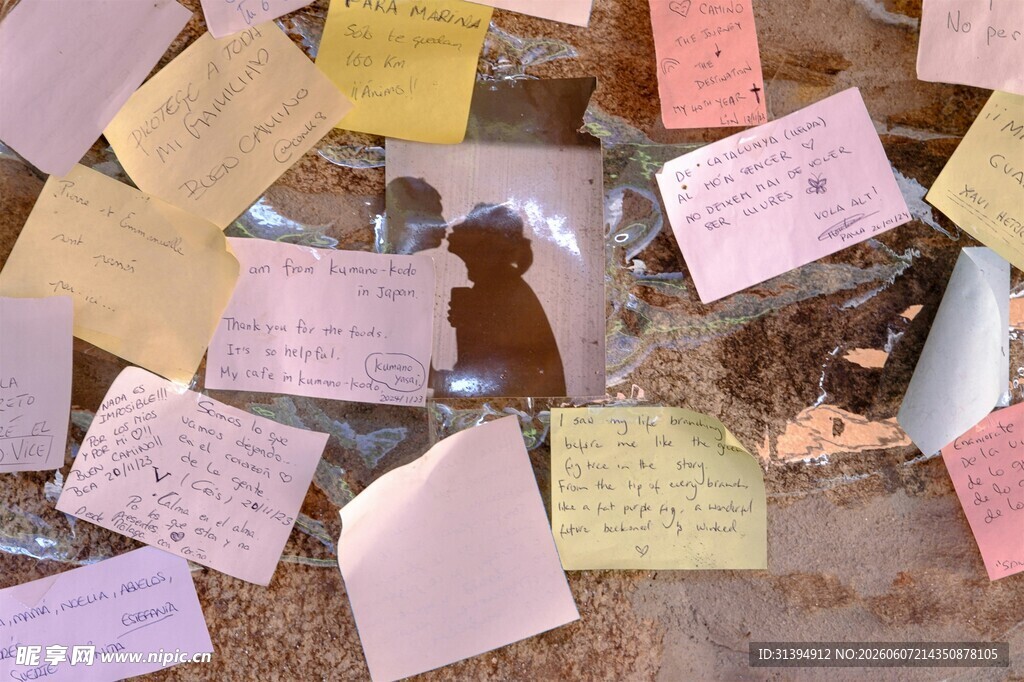 PARA MARINA
Solo te quedan
100 Km
¡¡Ánimo!!
PROTEGE A TODA
MI FAMILIA
BUEN CAMINO
CAMINO
THE JOURNEY
THE
DESTINATION
MY 40TH YEAR
No per
DE CATALUNYA (LLEIDA)
AL MÓN SENCER
NO DEIXEM MAI DE VOLER
SER LLIURES
VOLA ALT!
26/01/24
GUA
XAVI,
Pierre et Emmanuelle
sont
passés
par-ici...
am from Kumano-kodo
in Japan
Thank you for the foods.
It's so helpful.
My cafe in kumano-kodo.
kumano
yasai
2024/1/23
NADA ES
IMPOSIBLE!!!
POR LOS MIOS
Y POR MI
BUEN CAMINO!!
BEA 20/11/23
Somos lo que
vamos dejando
en el corazón
de la gente.
(Cris) 20/11/23
Calma en el alma
I saw my life branching
before me like the green
fig tree in the story.
From the tip of every branch
like a fat purple fig, a wonderful
future beckoned & winked.
MAMÁ, NOELIA, ABUELOS,
ESTEFANÍA
SUERTE
昵享网 www.nipic.cn
ID:31394912 NO:20260607214350878105